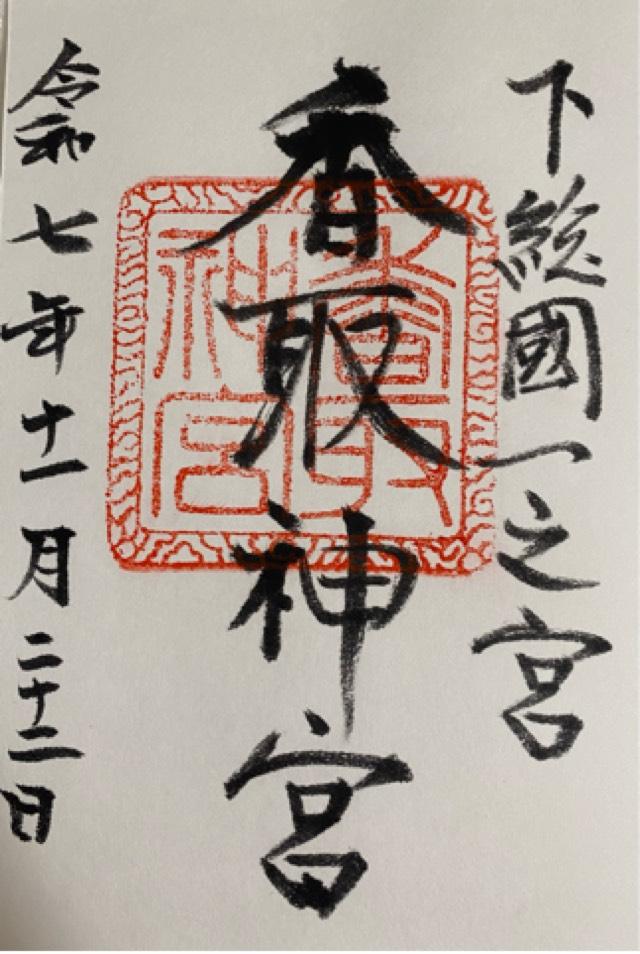 下総國一之宮
香取神宮
香取神宮
令和七年十一月二十二日